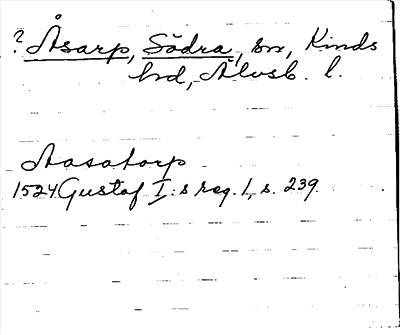 ? Åsarp, Södra, sn, Kinds
hd, Älvsb. l.
Aasatorp
1524 Gustaf I:s reg. 1, s. 239.